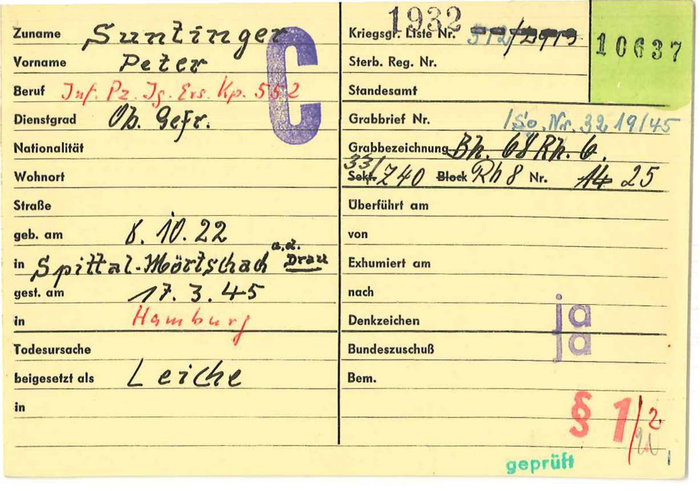 Zuname Suntinger
Vorname Peter
Beruf Inf. Pz. Jg. Ers. Kp. 552
Dienstgrad Ob. Gefr.
Nationalität
Wohnort
Straße
geb. am 8. 10. 22
in Spittal-Mörtschach a.d. Drau
gest. am 17. 3. 45
in Hamburg
Todesursache
beigesetzt als Leiche
in
C
1932
Kriegsgr. Liste Nr.
10637
Sterb. Reg. Nr.
Standesamt
Grabbrief Nr. /So. Nr. 3219/45
Grabbezeichnung Bh. 68 Rh. 6.
33/
Sekt. Z40 Block Rh 8 Nr. 14 25
Überführt am
von
Exhumiert am
nach
Denkzeichen ja
Bundeszuschuß ja
Bem.
§ 1/2
geprüft